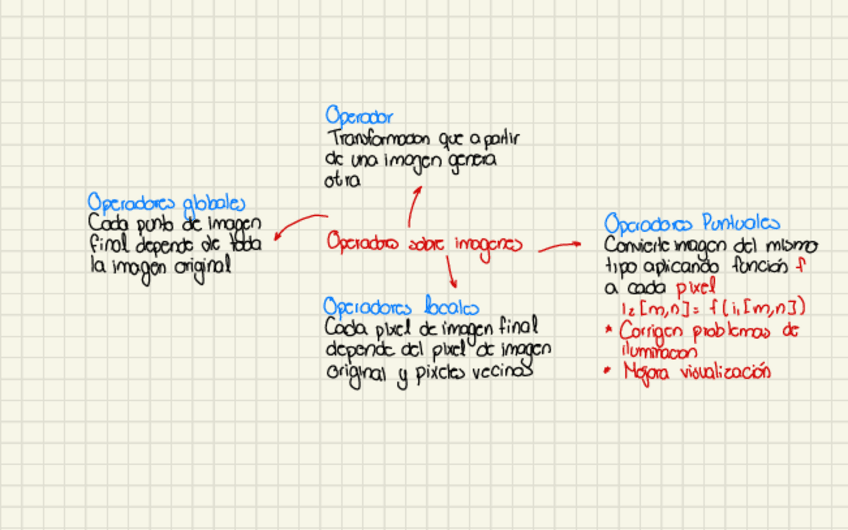 Operador
Transformacion que a partir
de una imagen genera
otra
Operadores globales
Cada punto de imagen
final depende de toda
la imagen original
Operadores sobre imagenes
Operadores locales
Cada pixel de imagen final
depende del pixel de imagen
original y pixeles vecinos
Operadores Puntuales
Convierte imagen del mismo
tipo aplicando función f
a cada pixel
i₂[m,n]= f(i₁[m,n])
* Corrigen problemas de
iluminacion
* Mejora visualización